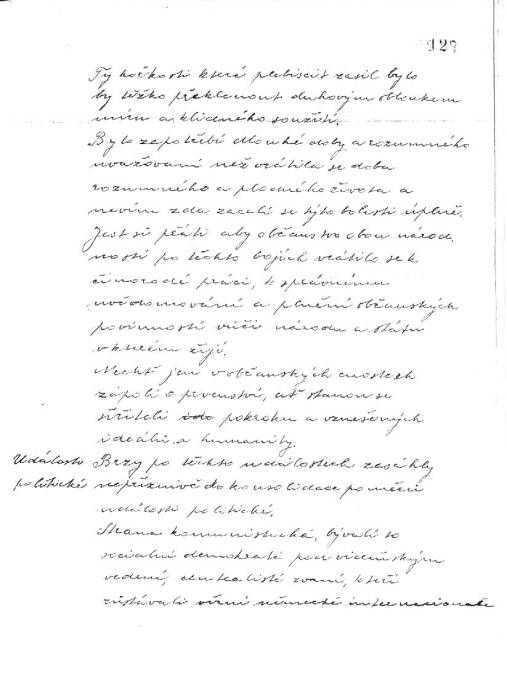 127
Ty hořkosti které plebiscit zasil bylo
by těžko překlenout duhovým obloukem
míru a klidného soužití.
Bylo zapotřebí dlouhé doby a rozumného
uvažování než vrátila se doba
rozumného a plodného života a
nevím zda zacelí se tyto bolesti úplně.
Jest si přáti aby občanstvo obou národ
ností po těchto bojích vrátilo se k
činorodé práci, k správnému
uvědomování a plnění občanských
povinností vůči národu a státu
v kterém žijí.
Nechť jen v občanských cnostech
zápolí o prvenství, ať stanou se
šiřiteli pokroku a vznešených
ideálů a humanity.
Události Brzy po těchto událostech zasáhly
politické nepříznivě do konsolidace poměrů
události politické.
Strana komunistická, bývalí to
sociální demokraté pod vídeňským
vedení, centralisté zvaní, kteří
zůstávali věrni německé internacionale